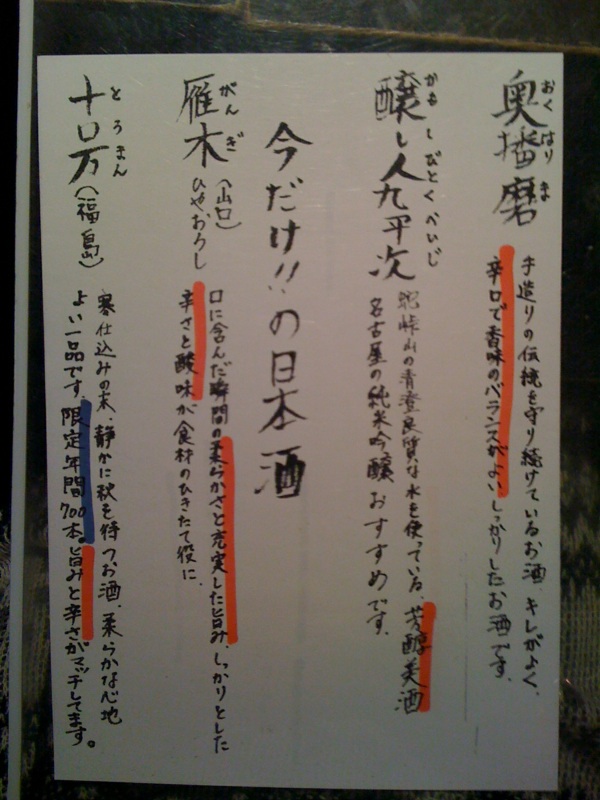 おくはりま
奥播磨
手造りの伝統を守り続けているお酒、キレがよく、
辛口で香味のバランスがよいしっかりしたお酒です。
かもしびとくへいじ
醸し人九平次
蛇峠山の青澄良質な水を使っている、芳醇美酒
名古屋の純米吟醸おすすめです。
今だけ!!の日本酒
がんぎ
雁木
(山口)
ひやおろし
口に含んだ瞬間の柔らかさと充実した旨み、しっかりとした
辛さと酸味が食材のひきたて役に、
とろまん
十口万(福島)
寒仕込みの末、静かに秋を待つお酒、柔らかな心地
よい一品です。限定年間700本。旨みと辛さがマッチしてます。